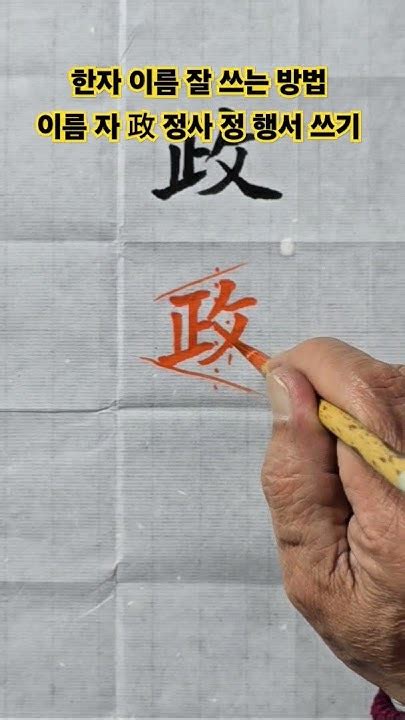 한자 이름 잘 쓰는 방법
이름 자 政 정사 정 행서 쓰기
政
政